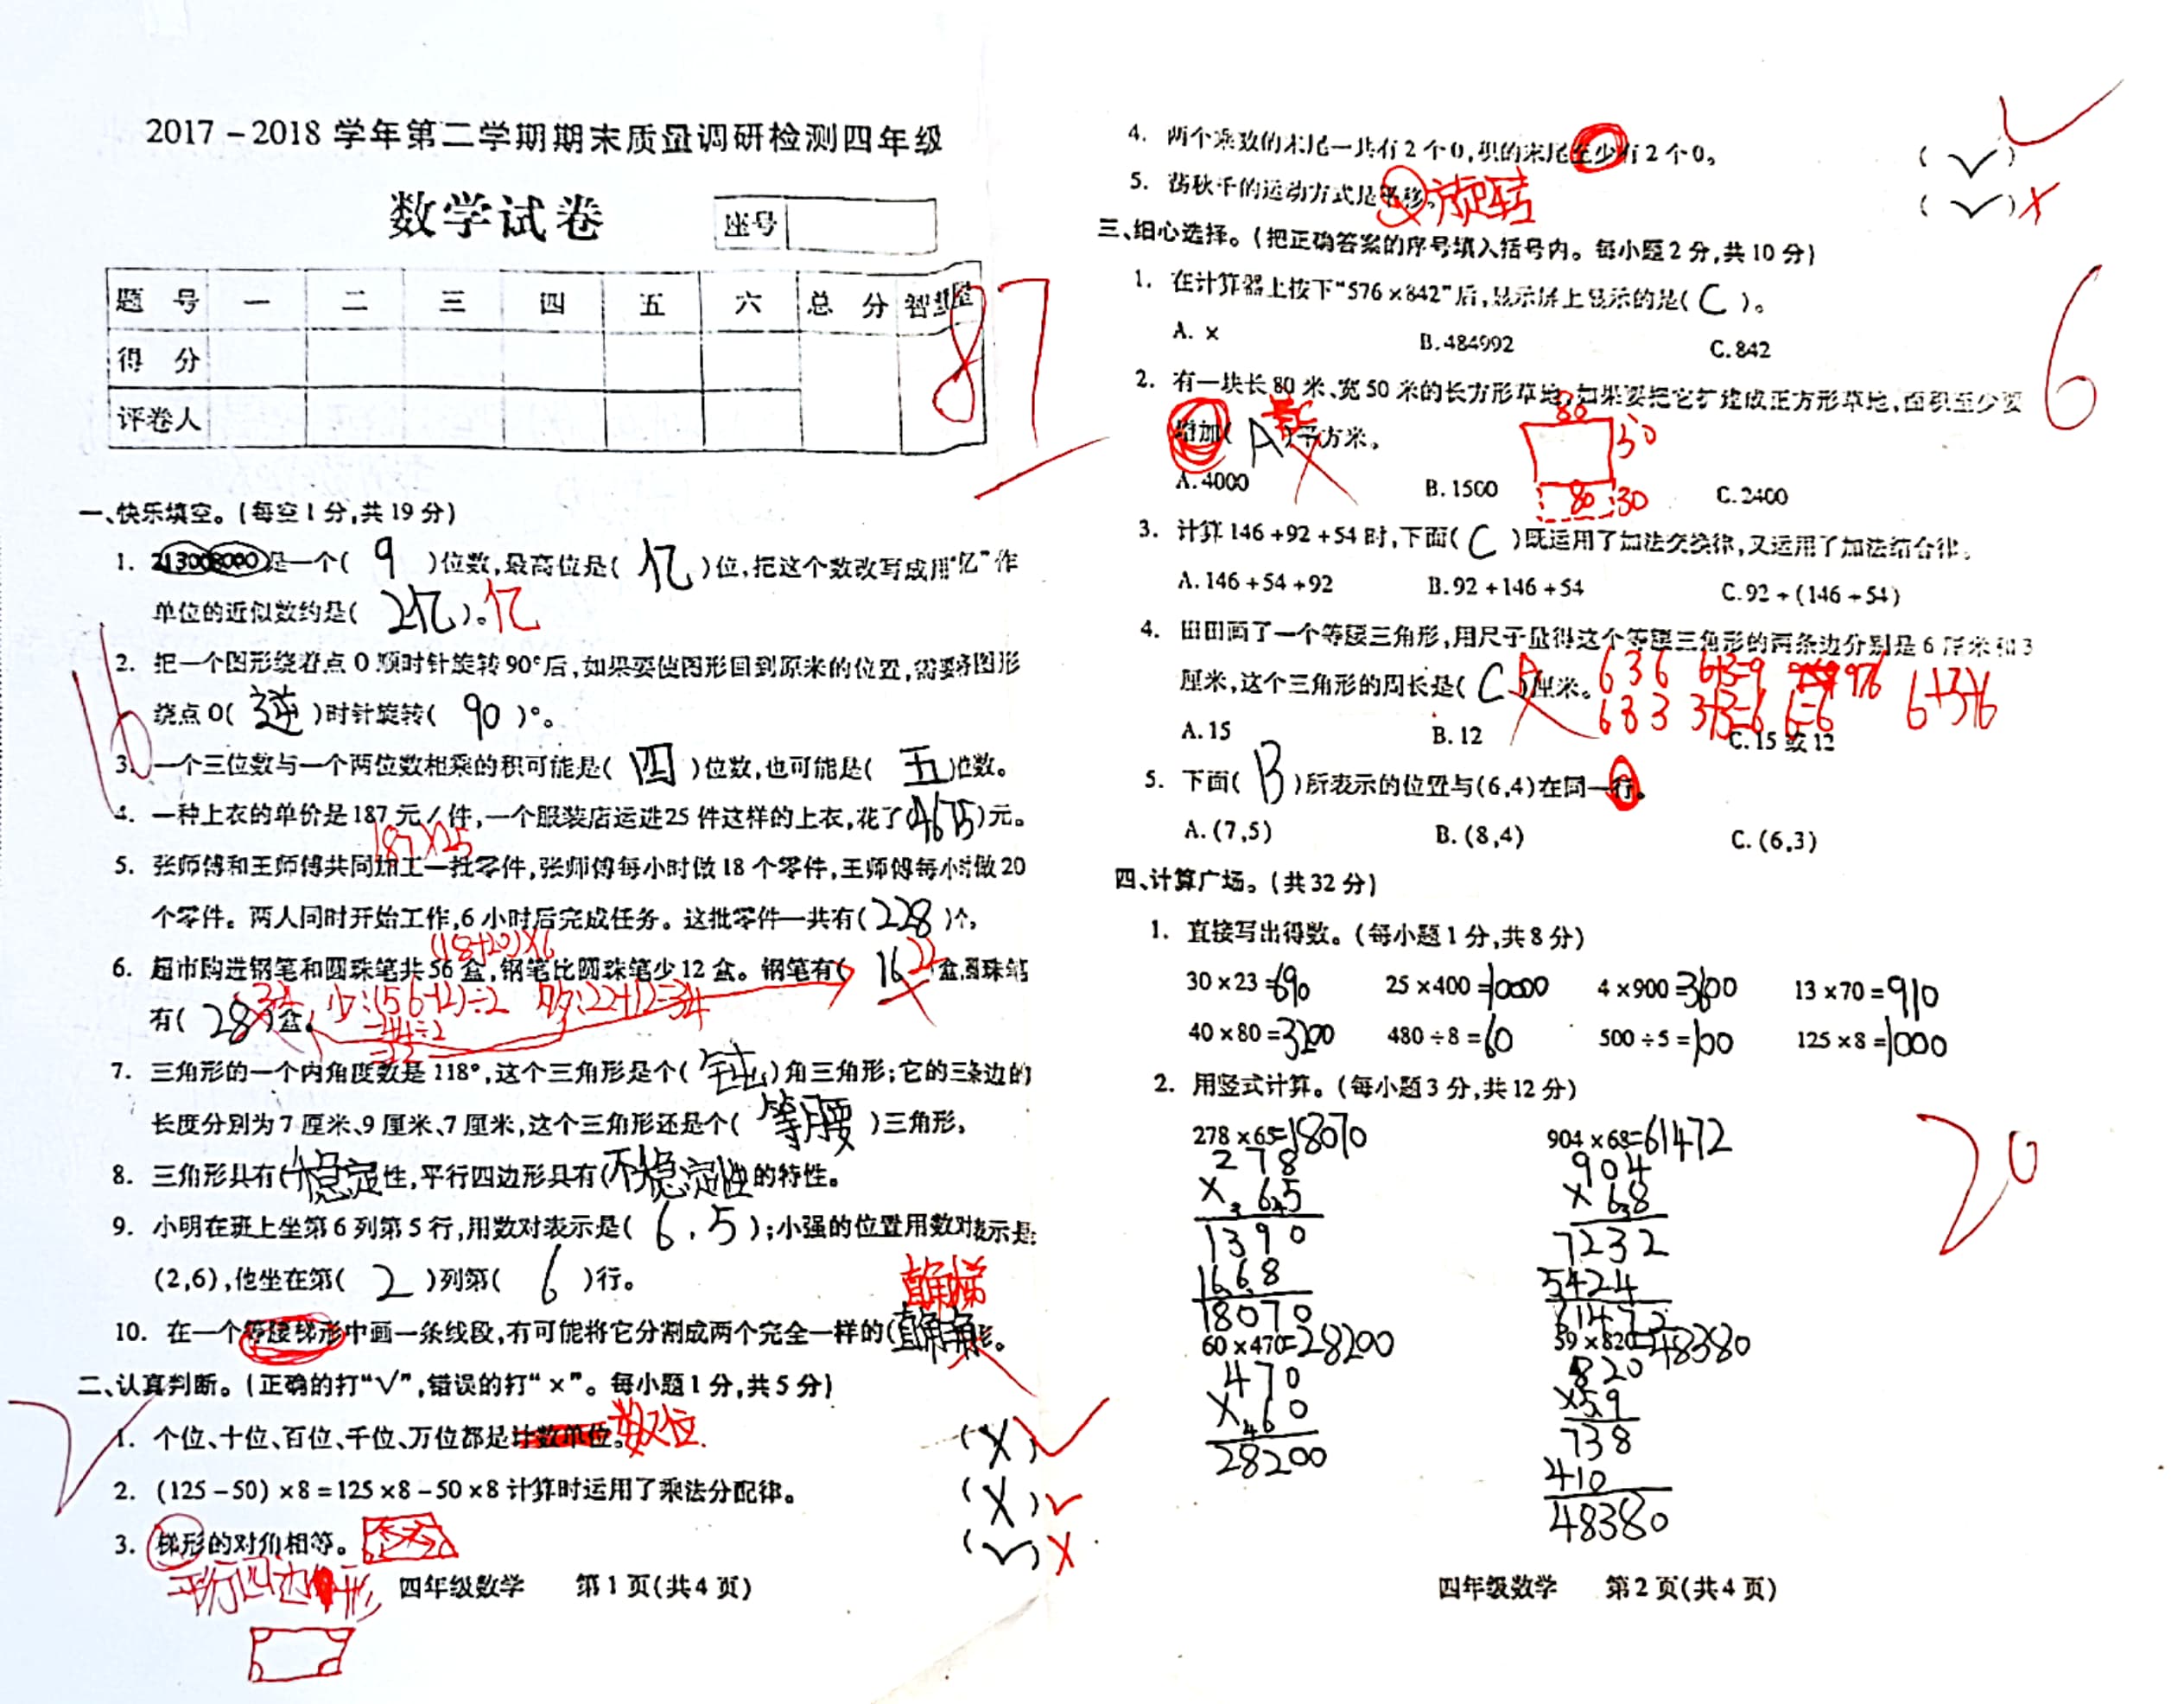 2017-2018 学年第二学期期末质量调研检测四年级
数学试卷
座号
题 号 一 二 三 四 五 六 总 分
得 分
评卷人
87
一、快乐填空。(每空1分,共19分)
1. 213008000是一个( 9 )位数,最高位是( 亿 )位,把这个数改写成用“亿”作
单位的近似数约是( 2亿 )。亿
2. 把一个图形绕着点O顺时针旋转90°后,如果要使图形回到原来的位置,需要将图形
绕点O( 逆 )时针旋转( 90 )°。
16
3. 一个三位数与一个两位数相乘的积可能是( 四 )位数,也可能是( 五 )位数。
4. 一种上衣的单价是187元/件,一个服装店运进25件这样的上衣,花了(4675)元。
187×25
5. 张师傅和王师傅共同加工一批零件,张师傅每小时做18个零件,王师傅每小时做20
个零件。两人同时开始工作,6小时后完成任务。这批零件一共有(228)个。
(18+20)×6
6. 超市购进钢笔和圆珠笔共56盒,钢笔比圆珠笔少12盒。钢笔有( 16 22 )盒,圆珠笔
有( 28 34 )盒。 少:(56-12)÷2
=44÷2
=22
7. 三角形的一个内角度数是118°,这个三角形是个( 钝 )角三角形;它的三条边的
长度分别为7厘米、9厘米、7厘米,这个三角形还是个( 等腰 )三角形。
8. 三角形具有(稳定)性,平行四边形具有(不稳定性)的特性。
9. 小明在班上坐第6列第5行,用数对表示是( 6,5 );小强的位置用数对表示是
(2,6),他坐在第( 2 )列第( 6 )行。
直角梯
10. 在一个等腰梯形中画一条线段,有可能将它分割成两个完全一样的(直角角)形。
二、认真判断。(正确的打“√”,错误的打“×”。每小题1分,共5分)
1. 个位、十位、百位、千位、万位都是计数单位。数位. (×)√
2. (125-50)×8=125×8-50×8计算时运用了乘法分配律。 (×)√
3. 梯形的对角相等。 (√)×
平行四边形
四年级数学 第1页(共4页)
4. 两个乘数的末尾一共有2个0,积的末尾至少有2个0。 (√)
5. 荡秋千的运动方式是平移。旋转 (√)×
三、细心选择。(把正确答案的序号填入括号内。每小题2分,共10分)
6
1. 在计算器上按下“576×842”后,显示屏上显示的是( C )。
A. × B. 484992 C. 842
2. 有一块长80米、宽50米的长方形草地,如果要把它扩建成正方形草地,面积至少要
增加( A )平方米。
80
50
80 30
A. 4000 B. 1500 C. 2400
3. 计算146+92+54时,下面( C )既运用了加法交换律,又运用了加法结合律。
A. 146+54+92 B. 92+146+54 C. 92+(146+54)
4. 田田画了一个等腰三角形,用尺子量得这个等腰三角形的两条边分别是6厘米和3
厘米,这个三角形的周长是( C )厘米。
A
6 3 6 6+3=9 9>6
6 3 3 3+3=6 6=6
A. 15 B. 12 C. 15或12
5. 下面( B )所表示的位置与(6,4)在同一行。
A. (7,5) B. (8,4) C. (6,3)
四、计算广场。(共32分)
1. 直接写出得数。(每小题1分,共8分)
30×23=690 25×400=10000 4×900=3600 13×70=910
40×80=3200 480÷8=60 500÷5=100 125×8=1000
2. 用竖式计算。(每小题3分,共12分)
20
278×65=18070 904×68=61472
278 904
× 65 × 68
1390 7232
1668 5424
18070 61472
60×470=28200 59×820=48380
470 820
× 60 ×59
28200 738
410
48380
四年级数学 第2页(共4页)